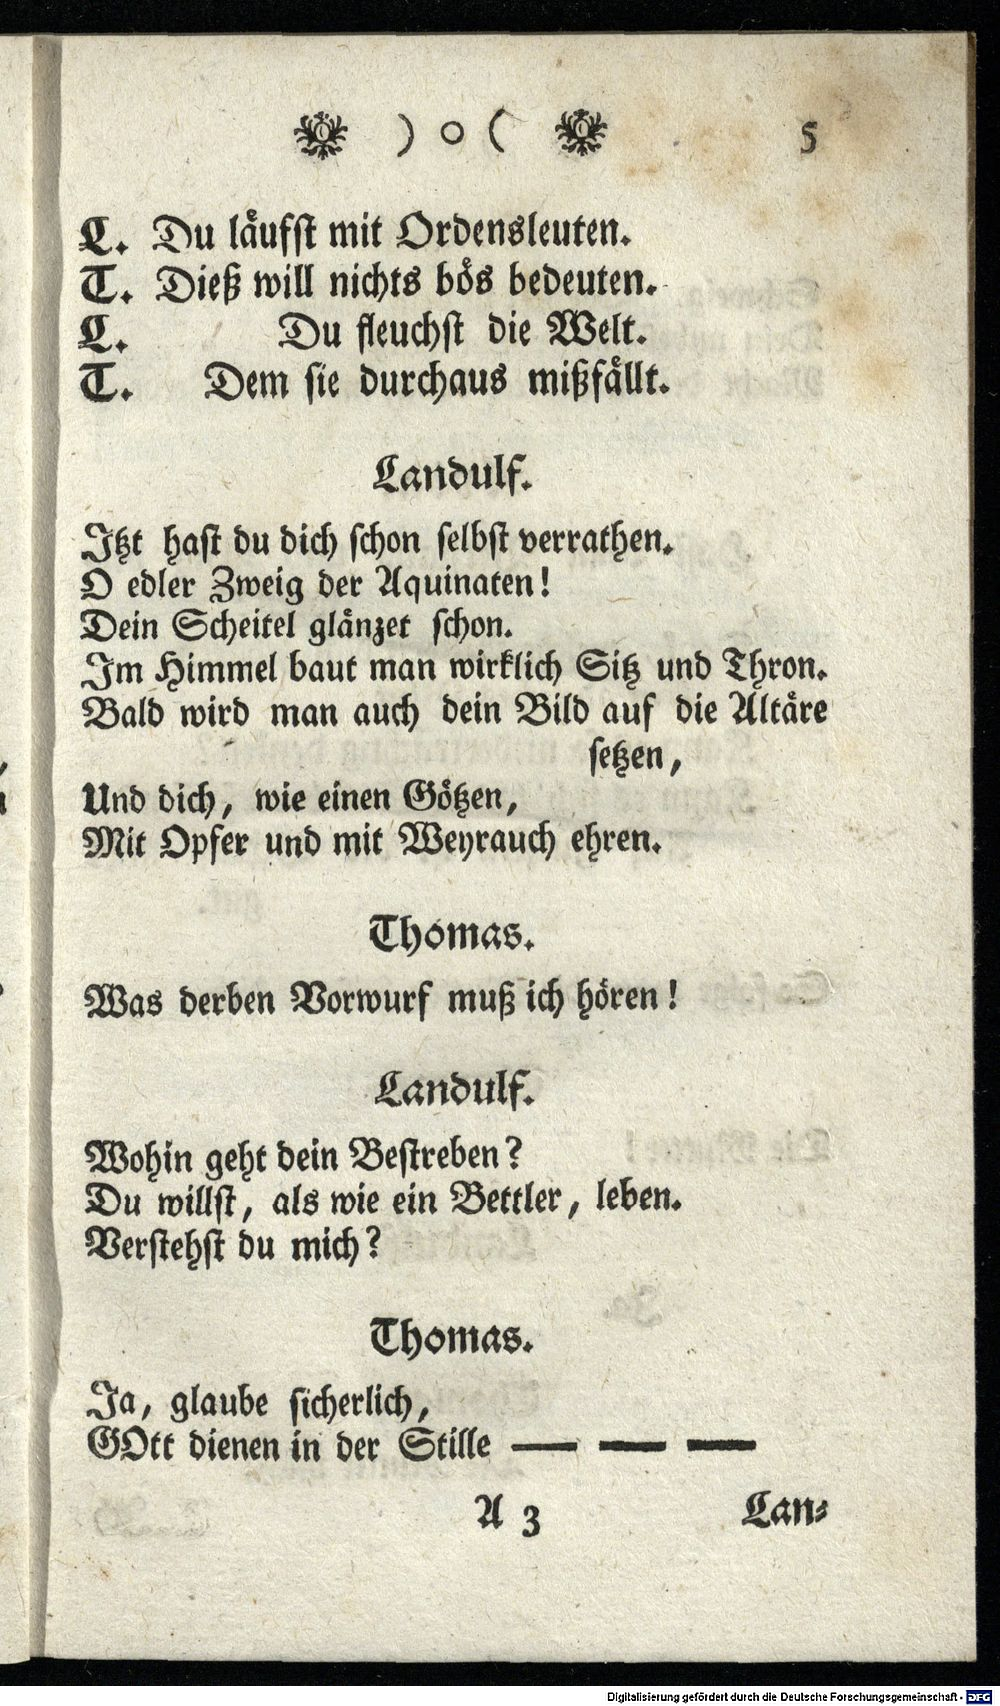 ) o ( 5
L. Du läufst mit Ordensleuten.
T. Dieß will nichts bös bedeuten.
L. Du fleuchst die Welt.
T. Dem sie durchaus mißfällt.
Landulf.
Itzt hast du dich schon selbst verrathen.
O edler Zweig der Aquinaten!
Dein Scheitel glänzet schon.
Im Himmel baut man wirklich Sitz und Thron.
Bald wird man auch dein Bild auf die Altäre
setzen,
Und dich, wie einen Götzen,
Mit Opfer und mit Weyrauch ehren.
Thomas.
Was derben Vorwurf muß ich hören!
Landulf.
Wohin geht dein Bestreben?
Du willst, als wie ein Bettler, leben.
Verstehst du mich?
Thomas.
Ja, glaube sicherlich,
GOtt dienen in der Stille — — —
A 3 Lan⸗
Digitalisierung gefördert durch die Deutsche Forschungsgemeinschaft - DFG